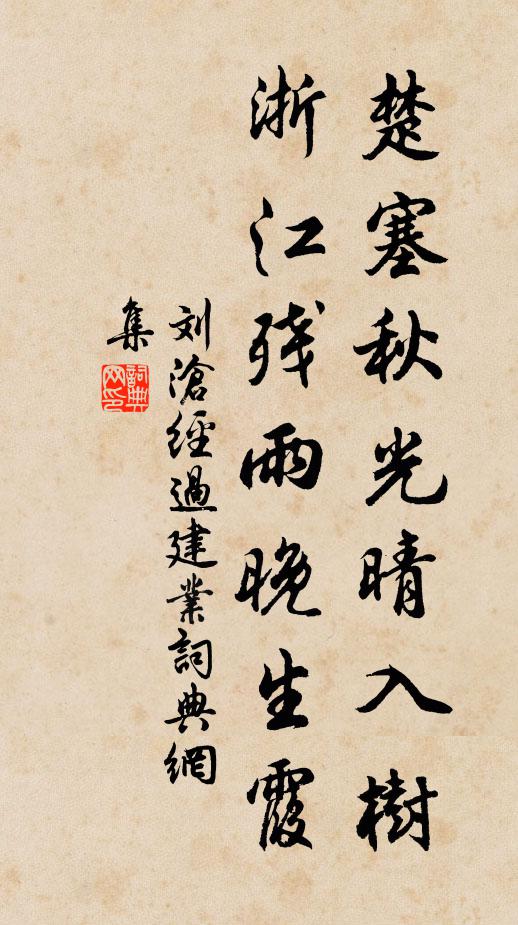 楚塞秋光晴入樹
浙江残雨晚生霞
刘滄經過建業詞典網
集
詞典
网印